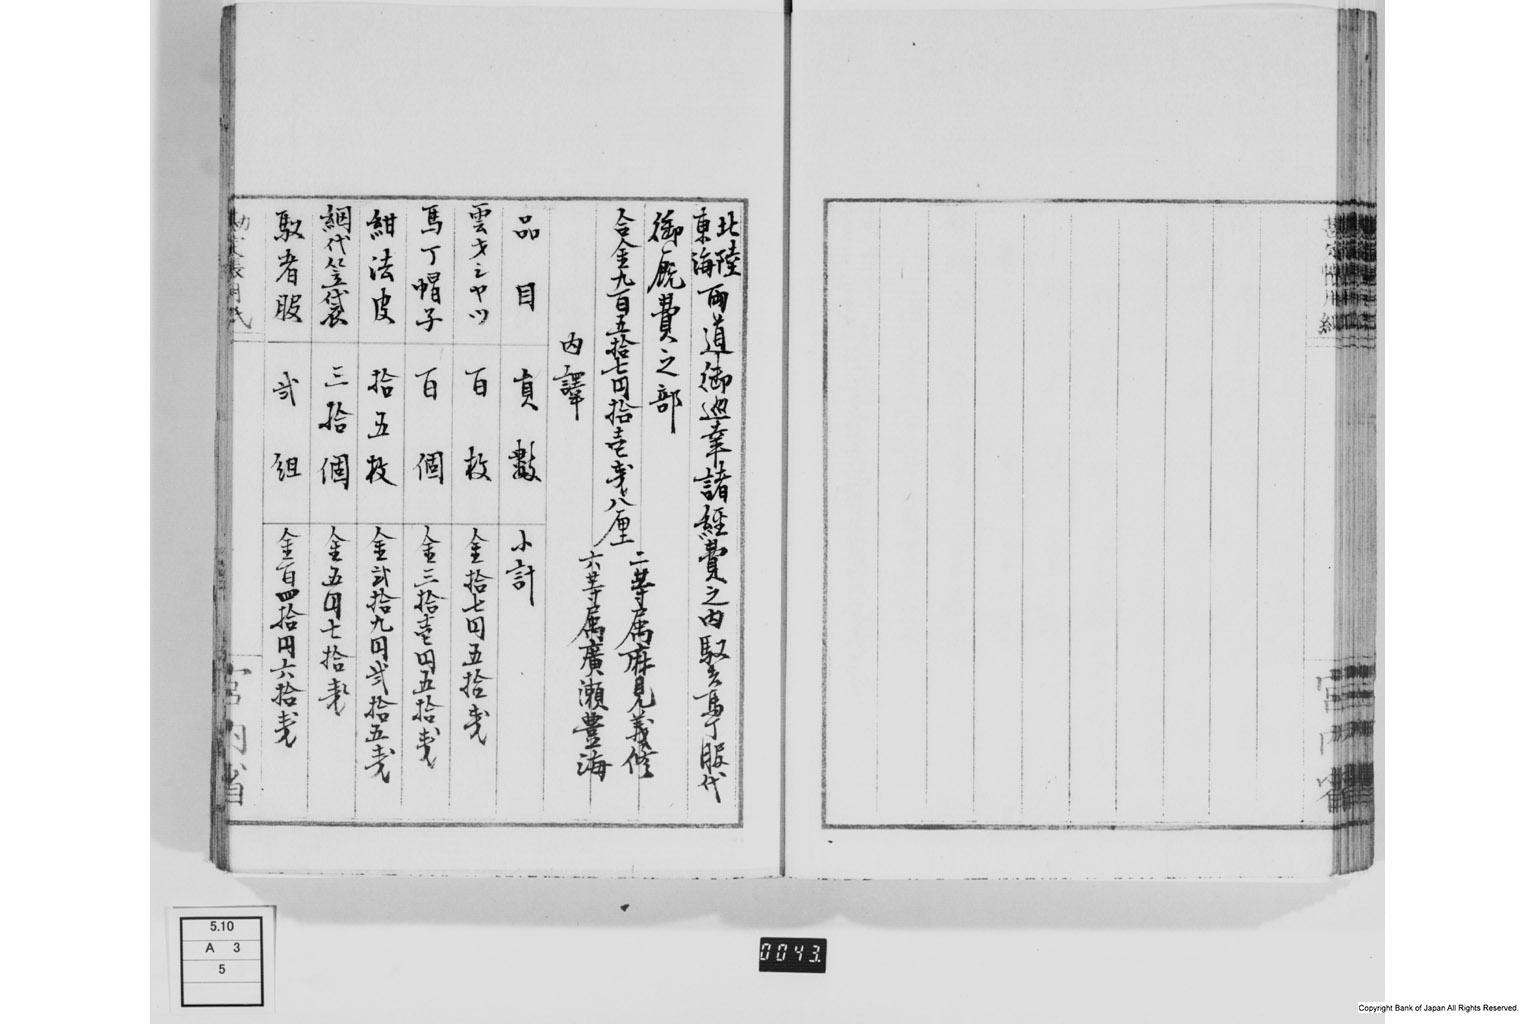 北陸
東海
両道御巡幸諸経費之内馭者馬丁服代
御厩費之部
合金九百五拾七円拾壱銭八厘
二等属麻見義修
六等属廣瀬豊海
内譯
品目 員數 小計
雲才シヤツ 百枚 金拾七円五拾銭
馬丁帽子 百個 金三拾壱円五拾銭
紺法皮 拾五枚 金弐拾九円弐拾五銭
網代笠袋 三拾個 金五円七拾銭
馭者服 弐組 金百四拾円六拾銭
宮内省
宮内省
5.10
A 3
5
0043.
Copyright Bank of Japan All Rights Reserved.